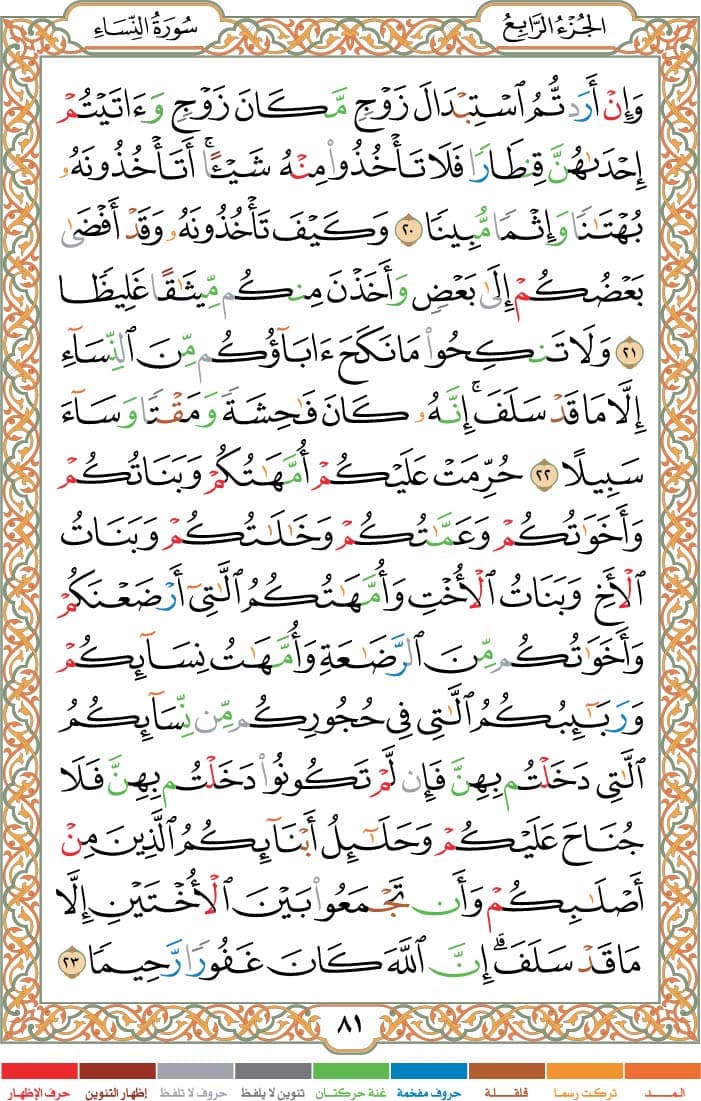 الجُزْءُ الرَّابِعُ
سُورَةُ النِّسَاءِ
وَإِنْ أَرَدتُّمُ ٱسْتِبْدَالَ زَوْجٍ مَّكَانَ زَوْجٍ وَءَاتَيْتُمْ
إِحْدَىٰهُنَّ قِنطَارًا فَلَا تَأْخُذُوا۟ مِنْهُ شَيْـًٔا ۚ أَتَأْخُذُونَهُۥ
بُهْتَـٰنًا وَإِثْمًا مُّبِينًا ٢٠ وَكَيْفَ تَأْخُذُونَهُۥ وَقَدْ أَفْضَىٰ
بَعْضُكُمْ إِلَىٰ بَعْضٍ وَأَخَذْنَ مِنكُم مِّيثَـٰقًا غَلِيظًا
٢١ وَلَا تَنكِحُوا۟ مَا نَكَحَ ءَابَآؤُكُم مِّنَ ٱلنِّسَآءِ
إِلَّا مَا قَدْ سَلَفَ ۚ إِنَّهُۥ كَانَ فَـٰحِشَةً وَمَقْتًا وَسَآءَ
سَبِيلًا ٢٢ حُرِّمَتْ عَلَيْكُمْ أُمَّهَـٰتُكُمْ وَبَنَاتُكُمْ
وَأَخَوَٰتُكُمْ وَعَمَّـٰتُكُمْ وَخَـٰلَـٰتُكُمْ وَبَنَاتُ
ٱلْأَخِ وَبَنَاتُ ٱلْأُخْتِ وَأُمَّهَـٰتُكُمُ ٱلَّـٰتِىٓ أَرْضَعْنَكُمْ
وَأَخَوَٰتُكُم مِّنَ ٱلرَّضَـٰعَةِ وَأُمَّهَـٰتُ نِسَآئِكُمْ
وَرَبَـٰٓئِبُكُمُ ٱلَّـٰتِى فِى حُجُورِكُم مِّن نِّسَآئِكُمُ
ٱلَّـٰتِى دَخَلْتُم بِهِنَّ فَإِن لَّمْ تَكُونُوا۟ دَخَلْتُم بِهِنَّ فَلَا
جُنَاحَ عَلَيْكُمْ وَحَلَـٰٓئِلُ أَبْنَآئِكُمُ ٱلَّذِينَ مِنْ
أَصْلَـٰبِكُمْ وَأَن تَجْمَعُوا۟ بَيْنَ ٱلْأُخْتَيْنِ إِلَّا
مَا قَدْ سَلَفَ ۗ إِنَّ ٱللَّهَ كَانَ غَفُورًا رَّحِيمًا ٢٣
٨١
المــد تركت رسما قلقـلة حروف مفخمة غنة حركتـان تنوين لا يلفظ حروف لا تلفظ إظهار التنوين حرف الإظهار